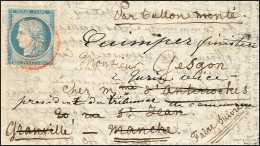 Par Ballon monté
Quimper finistère
Monsieur Chesgon
Cher Mme d'Anterroches
président du tribunal de commerce
20, rue St Jean
Granville Manche
Faire suivre